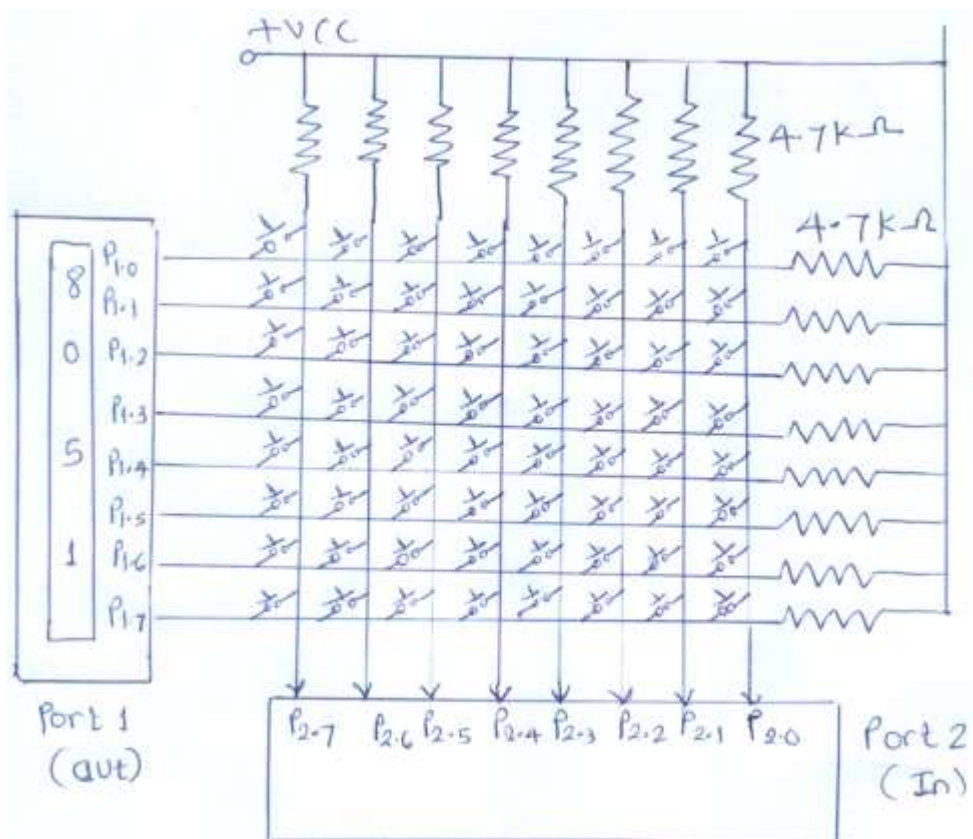 +VCC
4.7KΩ
4.7KΩ
8
0
5
1
P1.0
P1.1
P1.2
P1.3
P1.4
P1.5
P1.6
P1.7
Port 1
(out)
P2.7 P2.6 P2.5 P2.4 P2.3 P2.2 P2.1 P2.0
Port 2
(In)